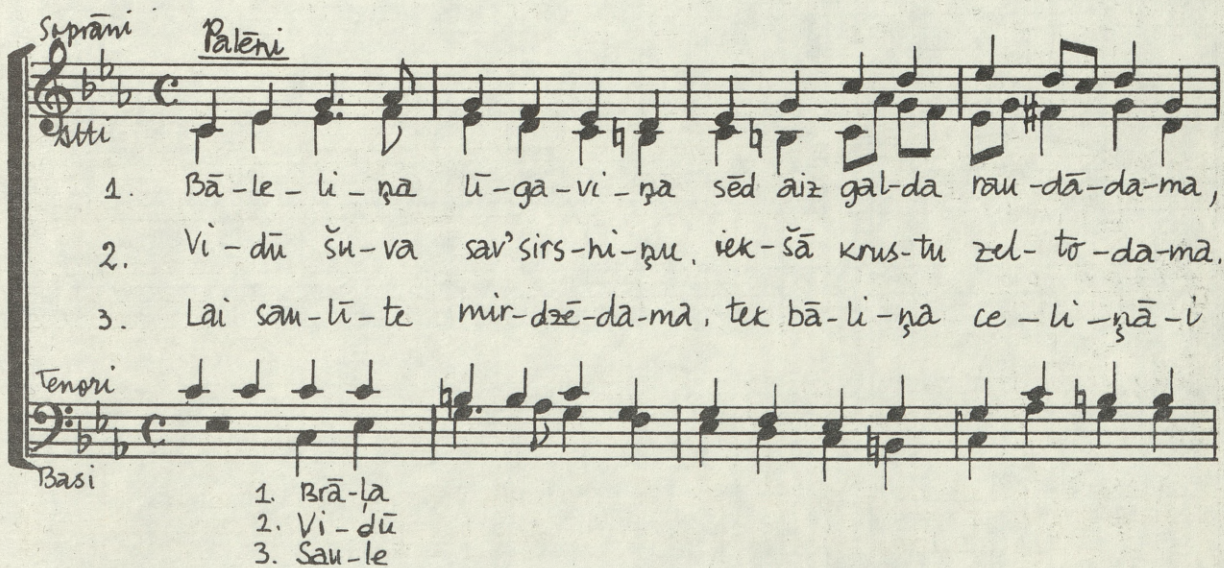 Soprāni
Palēni
Alti
1. Bā-le-li-ņa lī-ga-vi-ņa sēd aiz gal-da rau-dā-da-ma,
2. Vi-dū šu-va sav' sirs-ni-ņu, iek-šā krus-tu zel-to-da-ma.
3. Lai sau-lī-te mir-dzē-da-ma, tek bā-li-ņa ce-li-ņā-i
Tenori
Basi
1. Brā-ļa
2. Vi-dū
3. Sau-le